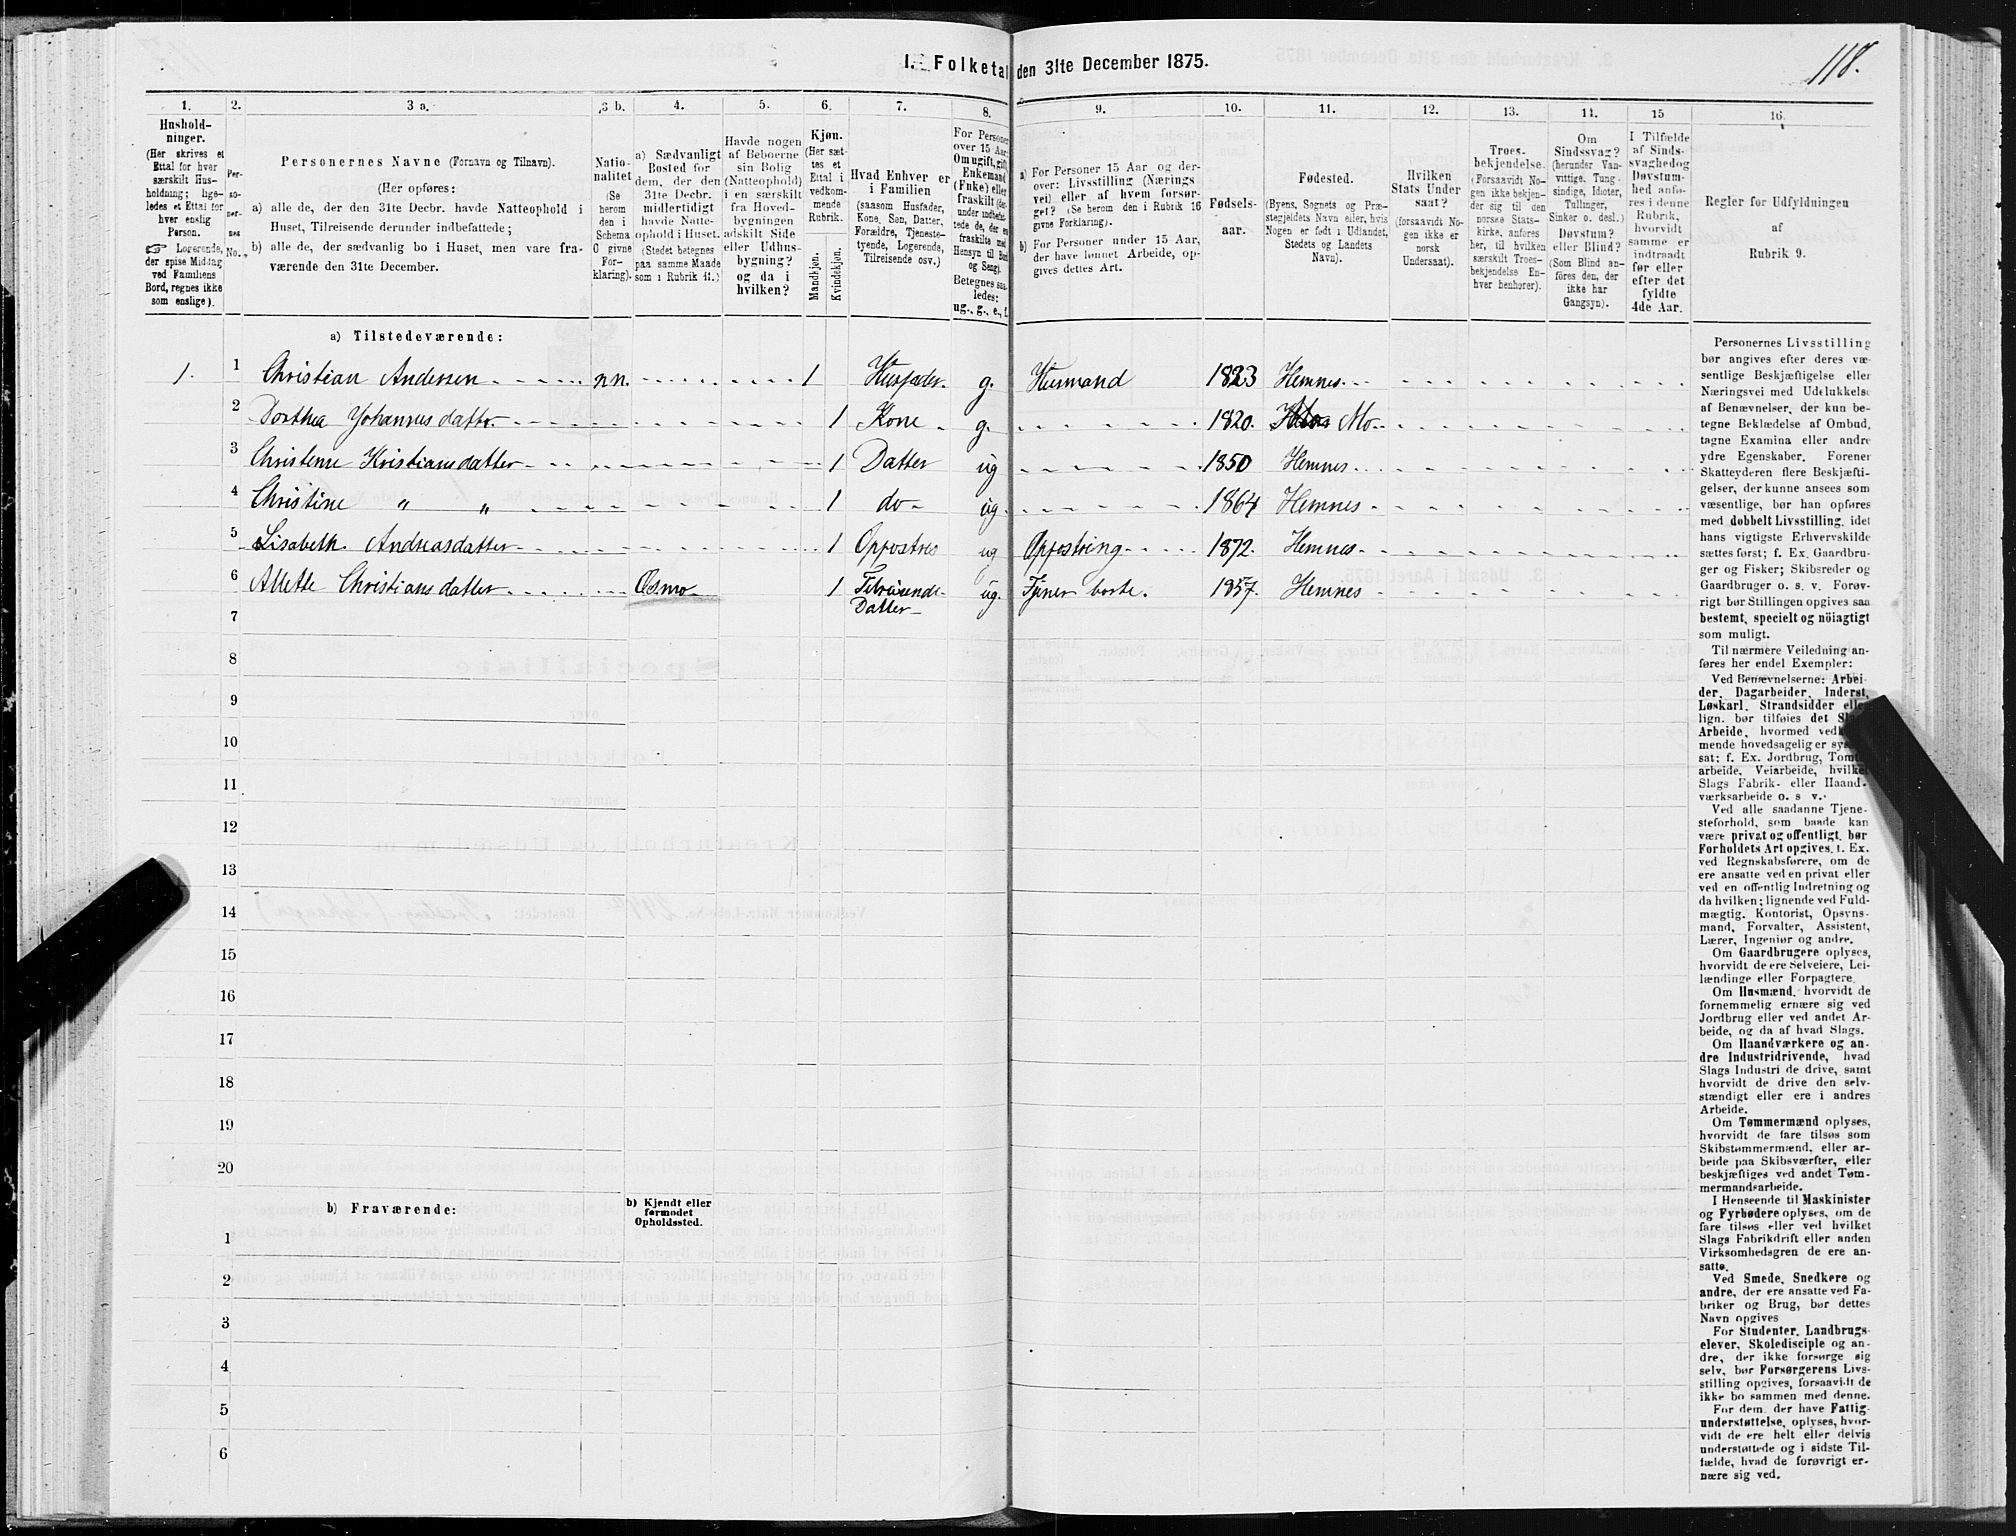 118.
I. Folketal den 31te December 1875.
1. 2. 3 a. 3 b. 4. 5. 6. 7. 8. 9. 10. 11. 12. 13. 14. 15 16.
Hushold-
ninger.
(Her skrives et
Ettal for hver
særskilt Hus-
holdning; lige-
ledes et Ettal for
hver enslig
Person.
☞ Logerende,
der spise Middag
ved Familiens
Bord, regnes ikke
som enslige).
Per-
so-
ner-
nes
No.
Personernes Navne (Fornavn og Tilnavn).
(Her opføres:
a) alle de, der den 31te Decbr. havde Natteophold i
Huset, Tilreisende derunder indbefattede;
b) alle de, der sædvanlig bo i Huset, men vare fra-
værende den 31te December.
Natio-
nalitet
(Se
herom
den i
Schema
C givne
For-
klaring).
a) Sædvanligt
Bosted for
dem, der den
31te Decbr.
midlertidigt
havde Natte-
ophold i Huset.
(Stedet betegnes
paa samme Maade
som i Rubrik 11.)
Havde nogen
af Beboerne
sin Bolig
(Natteophold)
i en særskilt
fra Hoved-
bygningen
adskilt Side
eller Udhus-
bygning?
og da i
hvilken?
Kjøn.
(Her sæt-
tes et
Ettal i
vedkom-
mende
Rubrik.
Mandkjøn.
Kvindekjøn.
Hvad Enhver er
i Familien
(saasom Husfader,
Kone, Søn, Datter,
Forældre, Tjeneste-
tyende, Logerende,
Tilreisende osv.)
For Personer
over 15 Aar:
Om ugift, gift,
Enkemand
(Enke) eller
fraskilt
Betegnes saa-
ledes:
ug., g., e., f.
a) For Personer 15 Aar og der-
over: Livsstilling (Nærings
vei) eller af hvem forsør-
get? (Se herom den i Rubrik 16
givne Forklaring).
b) For Personer under 15 Aar,
der have lønnet Arbeide, op-
gives dettes Art.
Fødsels-
aar.
Fødested.
(Byens, Sognets og Præ-
stegjeldets Navn eller, hvis
Nogen er født i Udlandet,
Stedets og Landets
Navn).
Hvilken
Stats Under
saat?
(forsaavidt No-
gen ikke er
norsk
Undersaat).
Troes-
bekjendelse.
(Forsaavidt No-
gen ikke bekjen-
der sig til den
norske Stats-
kirke, anføres
her, til hvilken
særskilt Troes-
bekjendelse En-
hver henhører).
Om
Sindssvag?
(herunder Van-
vittige, Tung-
sindige, Idioter,
Tullinger,
Sinker o. desl.)
Døvstum?
eller Blind?
(Som Blind an-
føres den, der
ikke har
Gangsyn).
I Tilfælde
af Sinds-
svaghedog
Døvstum-
hed anfø-
res i denne
Rubrik,
hvorvidt
samme er
indtraadt
før eller
efter det
fyldte
4de Aar.
Regler for Udfyldningen
af
Rubrik 9.
a) Tilstedeværende:
1. 1 Christian Andersen nn. 1 Husfader g. Husmand 1823 Hemnes
2 Dorthea Johannesdatter 1 Kone g. 1820. Mo
3 Christense Kristiansdatter 1 Datter ug 1850 Hemnes
4 Christine " " 1 do ug. 1864 Hemnes
5 Lisabeth Andreasdatter 1 Opfostres ug Opfostring 1872. Hemnes
6 Allette Christiansdatter Øsmo 1 Tilreisende ug. Tjener borte. 1857. Hemnes
Datter
7
8
9
10
11
12
13
14
15
16
17
18
19
20
b) Fraværende:
b) Kjendt eller
formodet
Opholdssted.
1
2
3
4
5
6
Personernes Livsstilling
bør angives efter deres væ-
sentlige Beskjæftigelse eller
Næringsvei med Udelukkelse
af Benævnelser, der kun be-
tegne Beklædelse af Ombud,
tagne Examina eller andre
ydre Egenskaber. Forener
Skatteyderen flere Beskjæfti-
gelser, der kunne ansees som
væsentlige, bør han opføres
med dobbelt Livsstilling, idet
hans vigtigste Erhvervskilde
sættes først; f. Ex. Gaardbru-
ger og Fisker; Skibsreder og
Gaardbruger o. s. v. Forøv-
rigt bør Stillingen opgives saa
bestemt, specielt og nöiagtigt
som muligt.
Til nærmere Veiledning an-
føres her endel Exempler:
Ved Benævnelserne: Arbei-
der, Dagarbeider, Inderst,
Løskarl, Strandsidder eller
lign. bør tilføies det Slags
Arbeide, hvormed vedkom-
mende hovedsagelig er syssel-
sat; f. Ex. Jordbrug, Tømmer-
arbeide, Veiarbeide, hvilket
Slags Fabrik- eller Haand-
værksarbeide o. s v.
Ved alle saadanne Tjene-
steforhold, som baade kan
være privat og offentligt, bør
Forholdets Art opgives, f. Ex.
ved Regnskabsførere, om de
ere ansatte ved en privat eller
ved en offentlig Indretning og
da hvilken; lignende ved Fuld-
mægtig, Kontorist, Opsyns-
mand, Forvalter, Assistent,
Lærer, Ingeniør og andre.
Om Gaardbrugere oplyses,
hvorvidt de ere Selveiere, Lei-
lændinge eller Forpagtere.
Om Husmænd, hvorvidt de
fornemmelig ernære sig ved
Jordbrug eller ved andet Ar-
beide, og da af hvad Slags.
Om Haandværkere og an-
dre Industridrivende, hvad
Slags Industri de drive, samt
hvorvidt de drive den selv-
stændigt eller ere i andres
Arbeide.
Om Tømmermænd oplyses,
hvorvidt de fare tilsøs som
Skibstømmermænd, eller ar-
beide paa Skibsværfter, eller
beskjæftiges ved andet Tøm-
mermandsarbeide.
I Henseende til Maskinister
og Fyrbødere oplyses, om de
fare tilsøs eller ved hvilket
Slags Fabrikdrift eller anden
Virksomhedsgren de ere an-
satte.
Ved Smede, Snedkere og
andre, der ere ansatte ved Fa-
briker og Brug, bør dettes
Navn opgives
For Studenter, Landbrugs-
elever, Skoledisciple og an-
dre, der ikke forsørge sig
selv, bør Forsørgerens Livs-
stilling opgives, forsaavidt de
ikke bo sammen med denne.
For dem, der have Fattig-
understøttelse, oplyses, hvor-
vidt de ere helt eller delvis
understøttede og i sidste Til-
fælde, hvad de forøvrigt er-
nære sig ved.